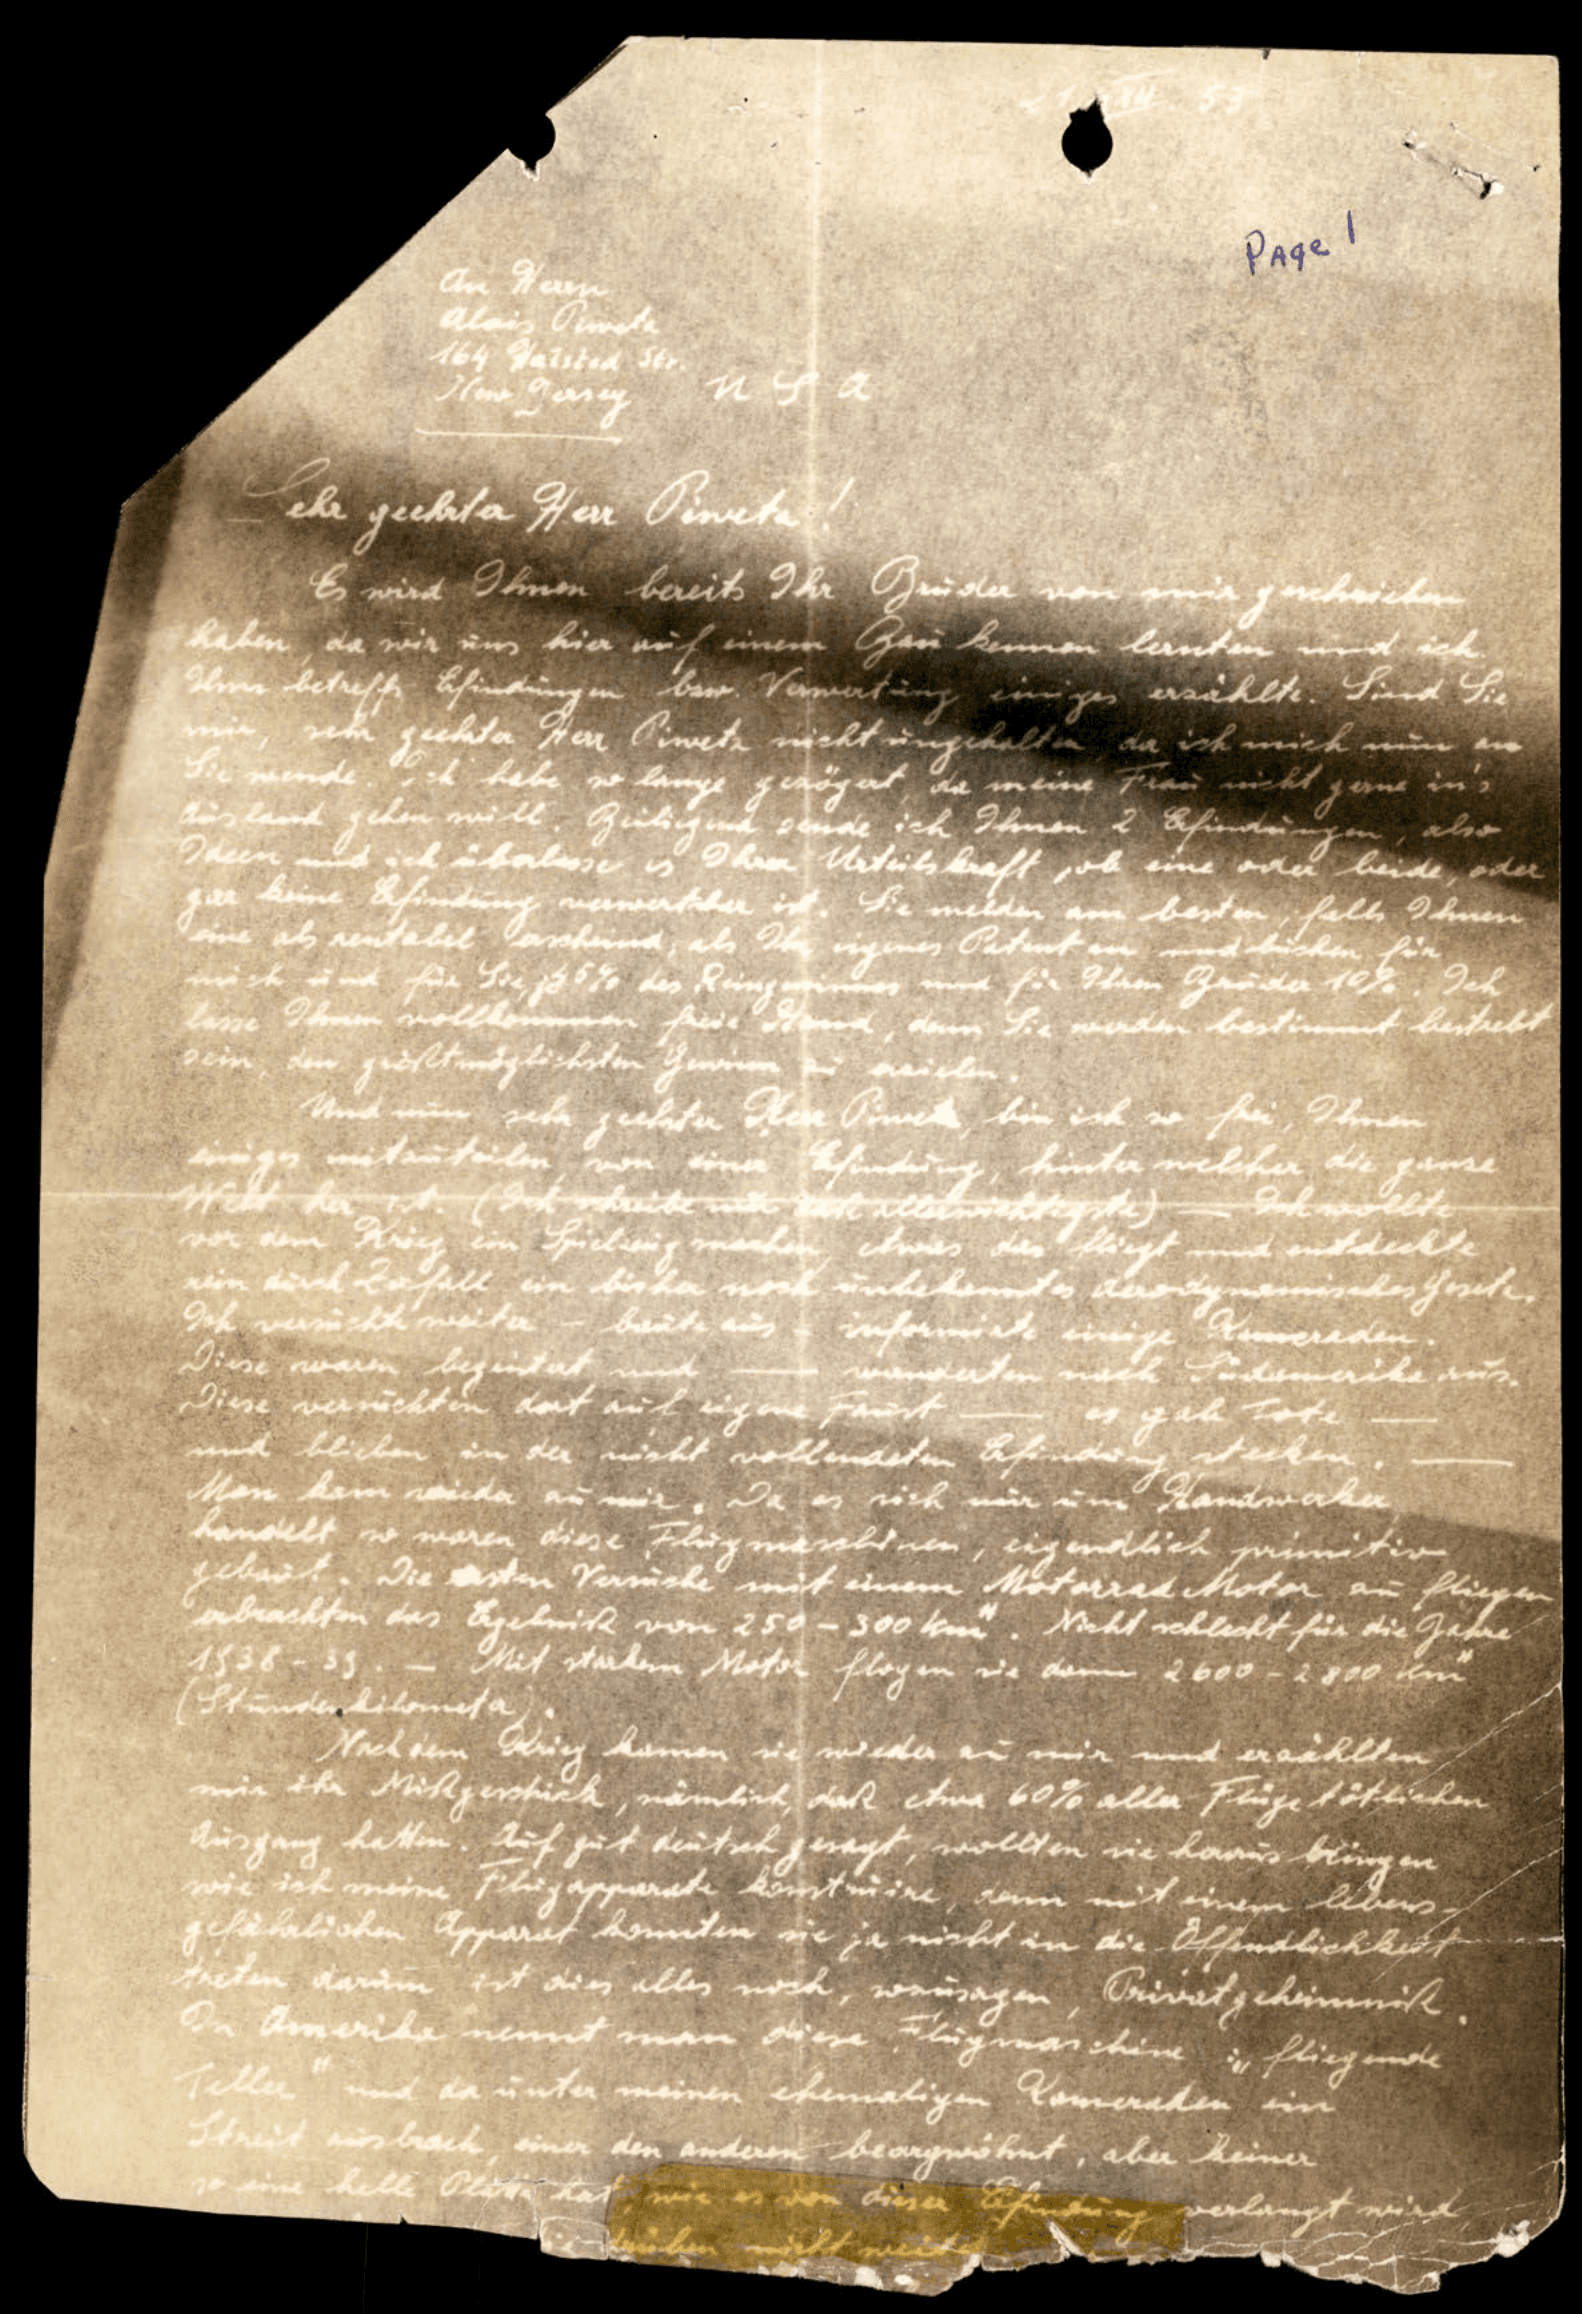 53
Page 1
An Herrn
Alois Pirveta
164 Halsted Str.
New Jersey U S A
Sehr geehrter Herr Pirveta!
Es wird Ihnen bereits Ihr Bruder von mir geschrieben
haben, da wir uns hier auf einem Bau kennen lernten und ich
Ihm betreffs Erfindungen bzw. Verwertung einiges erzählte. Sind Sie
mir, sehr geehrter Herr Pirveta nicht ungehalten da ich mich nun an
Sie wende. Ich habe so lange gezögert, da meine Frau nicht gerne in's
Ausland gehen will. Beiliegend sende ich Ihnen 2 Erfindungen, also
Ideen und ich überlasse es Ihrer Urteilskraft, ob eine oder beide, oder
gar keine Erfindung verwertbar ist. Sie melden am besten, falls Ihnen
eine als rentabel erscheind, als Ihr eigenes Patent an und buchen für
mich und für Sie je 45% des Reingewinnes und für Ihren Bruder 10%. Ich
lasse Ihnen vollkommen freie Hand, denn Sie werden bestimmt bestrebt
sein, den größtmöglichsten Gewinn zu erzielen.
Und nun sehr geehrter Herr Pirveta, bin ich so frei, Ihnen
einiges mitzuteilen von einer Erfindung, hinter welcher die ganze
Welt her ist. (Ich schreibe nur das allerwichtigste) — Ich wollte
vor dem Krieg ein Spielzeug machen etwas das fliegt und entdeckte
rein durch Zufall ein bisher noch unbekanntes aerodynamisches Gesetz.
Ich versuchte weiter – baute aus – informierte einige Kameraden.
Diese waren begeistert und — wanderten nach Südamerika aus.
Diese versuchten dort auf eigene Faust — es gab Tote —
und blieben in der nicht vollendeten Erfindung stecken. —
Man kam wieder zu mir. Da es sich nur um Handwerker
handelt so waren diese Flugmaschinen, eigendlich primitiv
gebaut. Die ersten Versuche mit einem Motorrad Motor zu fliegen
erbrachten das Ergebniß von 250 – 300 km". Nicht schlecht für die Jahre
1938 – 39. — Mit starkem Motor flogen sie dann 2600 – 2800 km"
(Stundenkilometer).
Nach dem Krieg kamen sie wieder zu mir und erzählten
mir ihr Mißgeschick, nämlich, daß etwa 60% aller Flüge tötlichen
Ausgang hatten. Auf gut deutsch gesagt, wollten sie heraus bringen
wie ich meine Flugapparate konstruire, denn mit einem lebens-
gefährlichen Apparat konnten sie ja nicht in die Öffendlichkeit
treten darum ist dies alles noch, sozusagen, Privatgeheimniß.
In Amerika nennt man diese Flugmaschine: „fliegende
Teller" und da unter meinen ehemaligen Kameraden ein
Streit ausbrach, einer den anderen beargwöhnt, aber keiner
so eine helle Platte hat wie es von dieser Erfindung verlangt wird,
nicht weiter